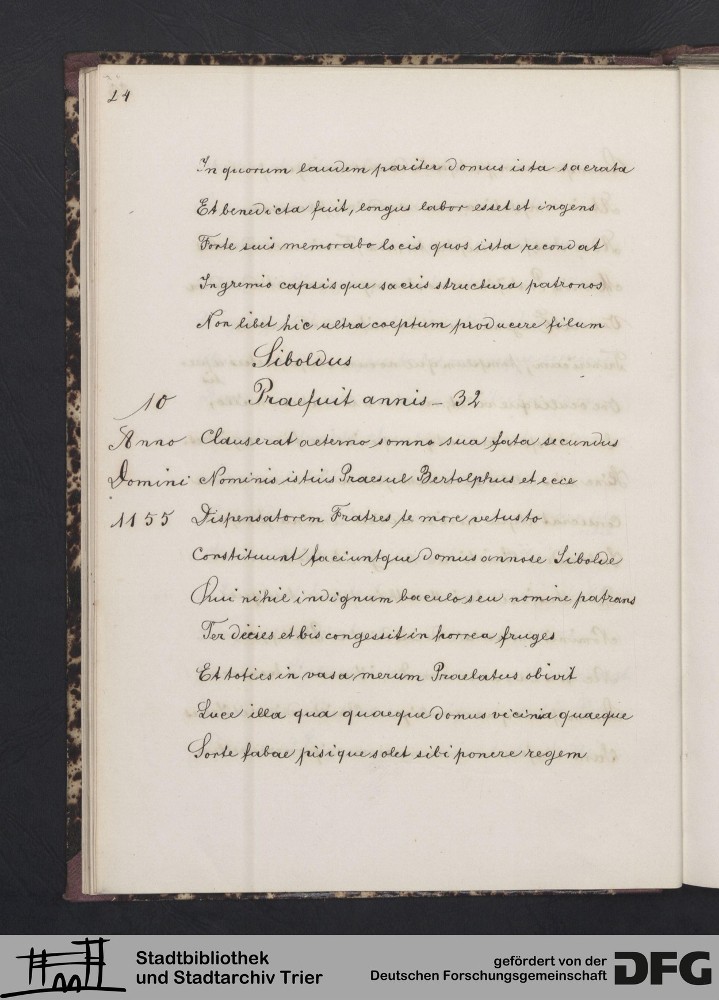 24
In quorum laudem pariter domus ista sacrata
Et benedicta fuit, longus labor esset et ingens
Forte suis memorabo locis quos ista recondat
In gremio capsisque sacris structura patronos
Non libet hic ultra coeptum producere filum
Siboldus
10 Praefuit annis - 32
Anno Clauserat aeterno somno sua fata secundus
Domini Nominis istius Praesul Bertolphus et ecce
1155 Dispensatorem Fratres te more vetusto
Constituunt faciuntque domus annose Sibolde
Qui nihil indignum baculo seu nomine patrans
Ter decies et bis congessit in horrea fruges
Et toties in vasa merum Praelatus obivit
Luce illa qua quaeque domus vicinia quaeque
Sorte fabae pisique solet sibi ponere regem
Stadtbibliothek
und Stadtarchiv Trier
gefördert von der
Deutschen Forschungsgemeinschaft
DFG